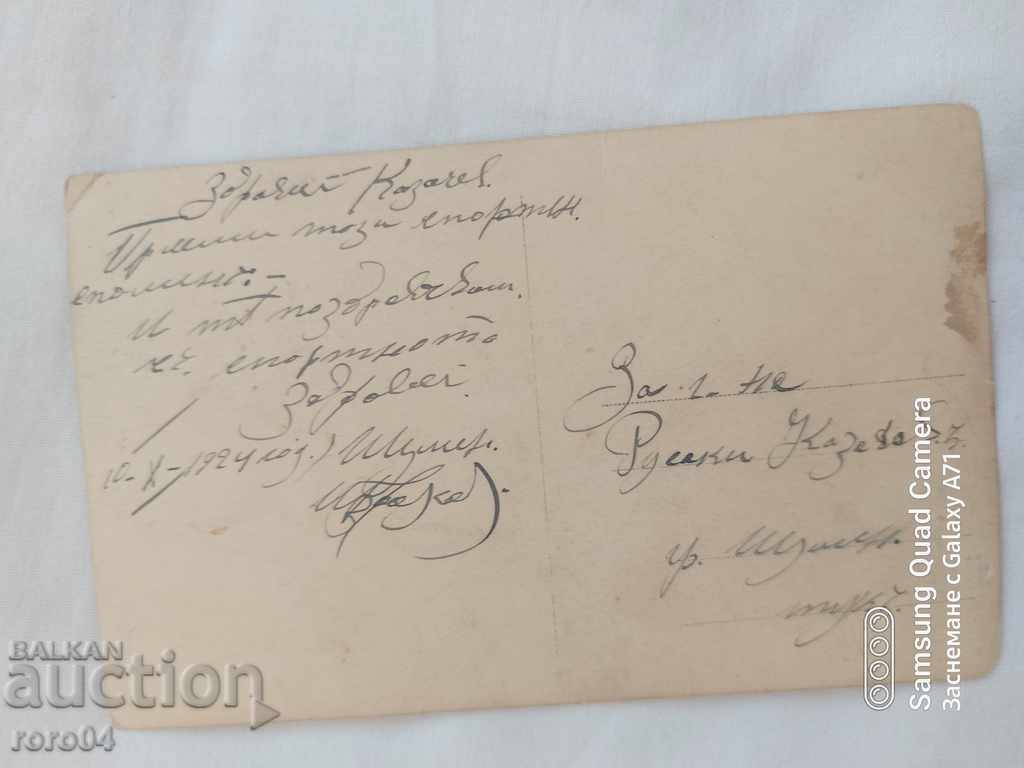 Здравий Казачев.
Приеми този спортн.
спомент. –
И те поздравявам
със спортното
Здравей.
10–X–1924 год.) Шумен.
За г-не
Русаки Казаков
гр. Шумен.
тукъ.
BALKAN
auction
roro04
Samsung Quad Camera
Заснемане с Galaxy A71